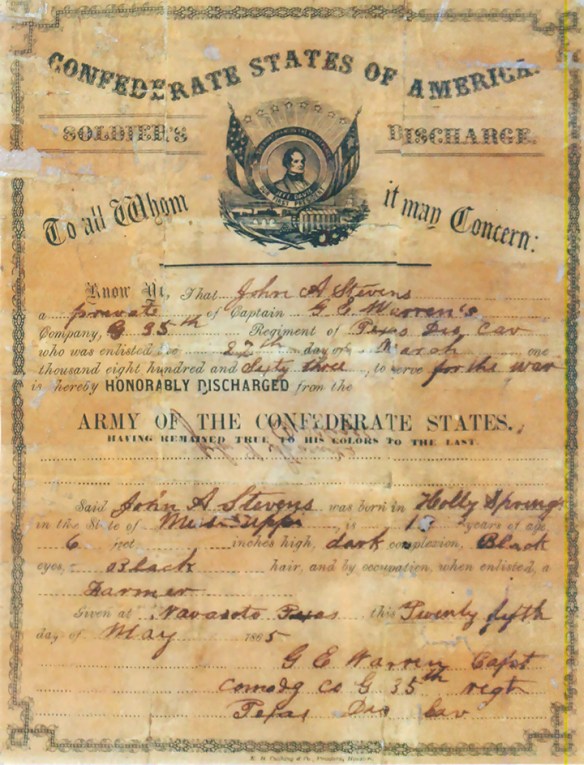 CONFEDERATE STATES OF AMERICA.
SOLDIER'S DISCHARGE.
JEFF. DAVIS
OUR FIRST PRESIDENT
To all Whom it may Concern:
Know Ye, That John A Stevens
a private of Captain G. E. Warren's
Company, G 35th Regiment of Texas Dis Cav
who was enlisted the 27th day of March one
thousand eight hundred and Sixty three, to serve for the war
is hereby HONORABLY DISCHARGED from the
ARMY OF THE CONFEDERATE STATES,
HAVING REMAINED TRUE TO HIS COLORS TO THE LAST.
Said John A Stevens was born in Holly Springs
in the State of Mississippi is years of age
6 feet inches high, dark complexion, Black
eyes, Black hair, and by occupation, when enlisted, a
Farmer
Given at Navasoto Texas this Twenty fifth
day of May 1865
G E Warren Capt
Comdg Co G 35th regt
Texas Dis Cav